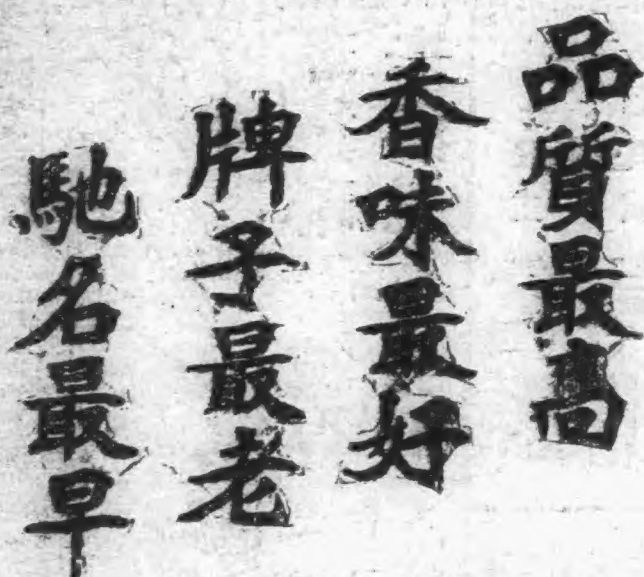 品質最高
香味最好
牌子最老
馳名最早